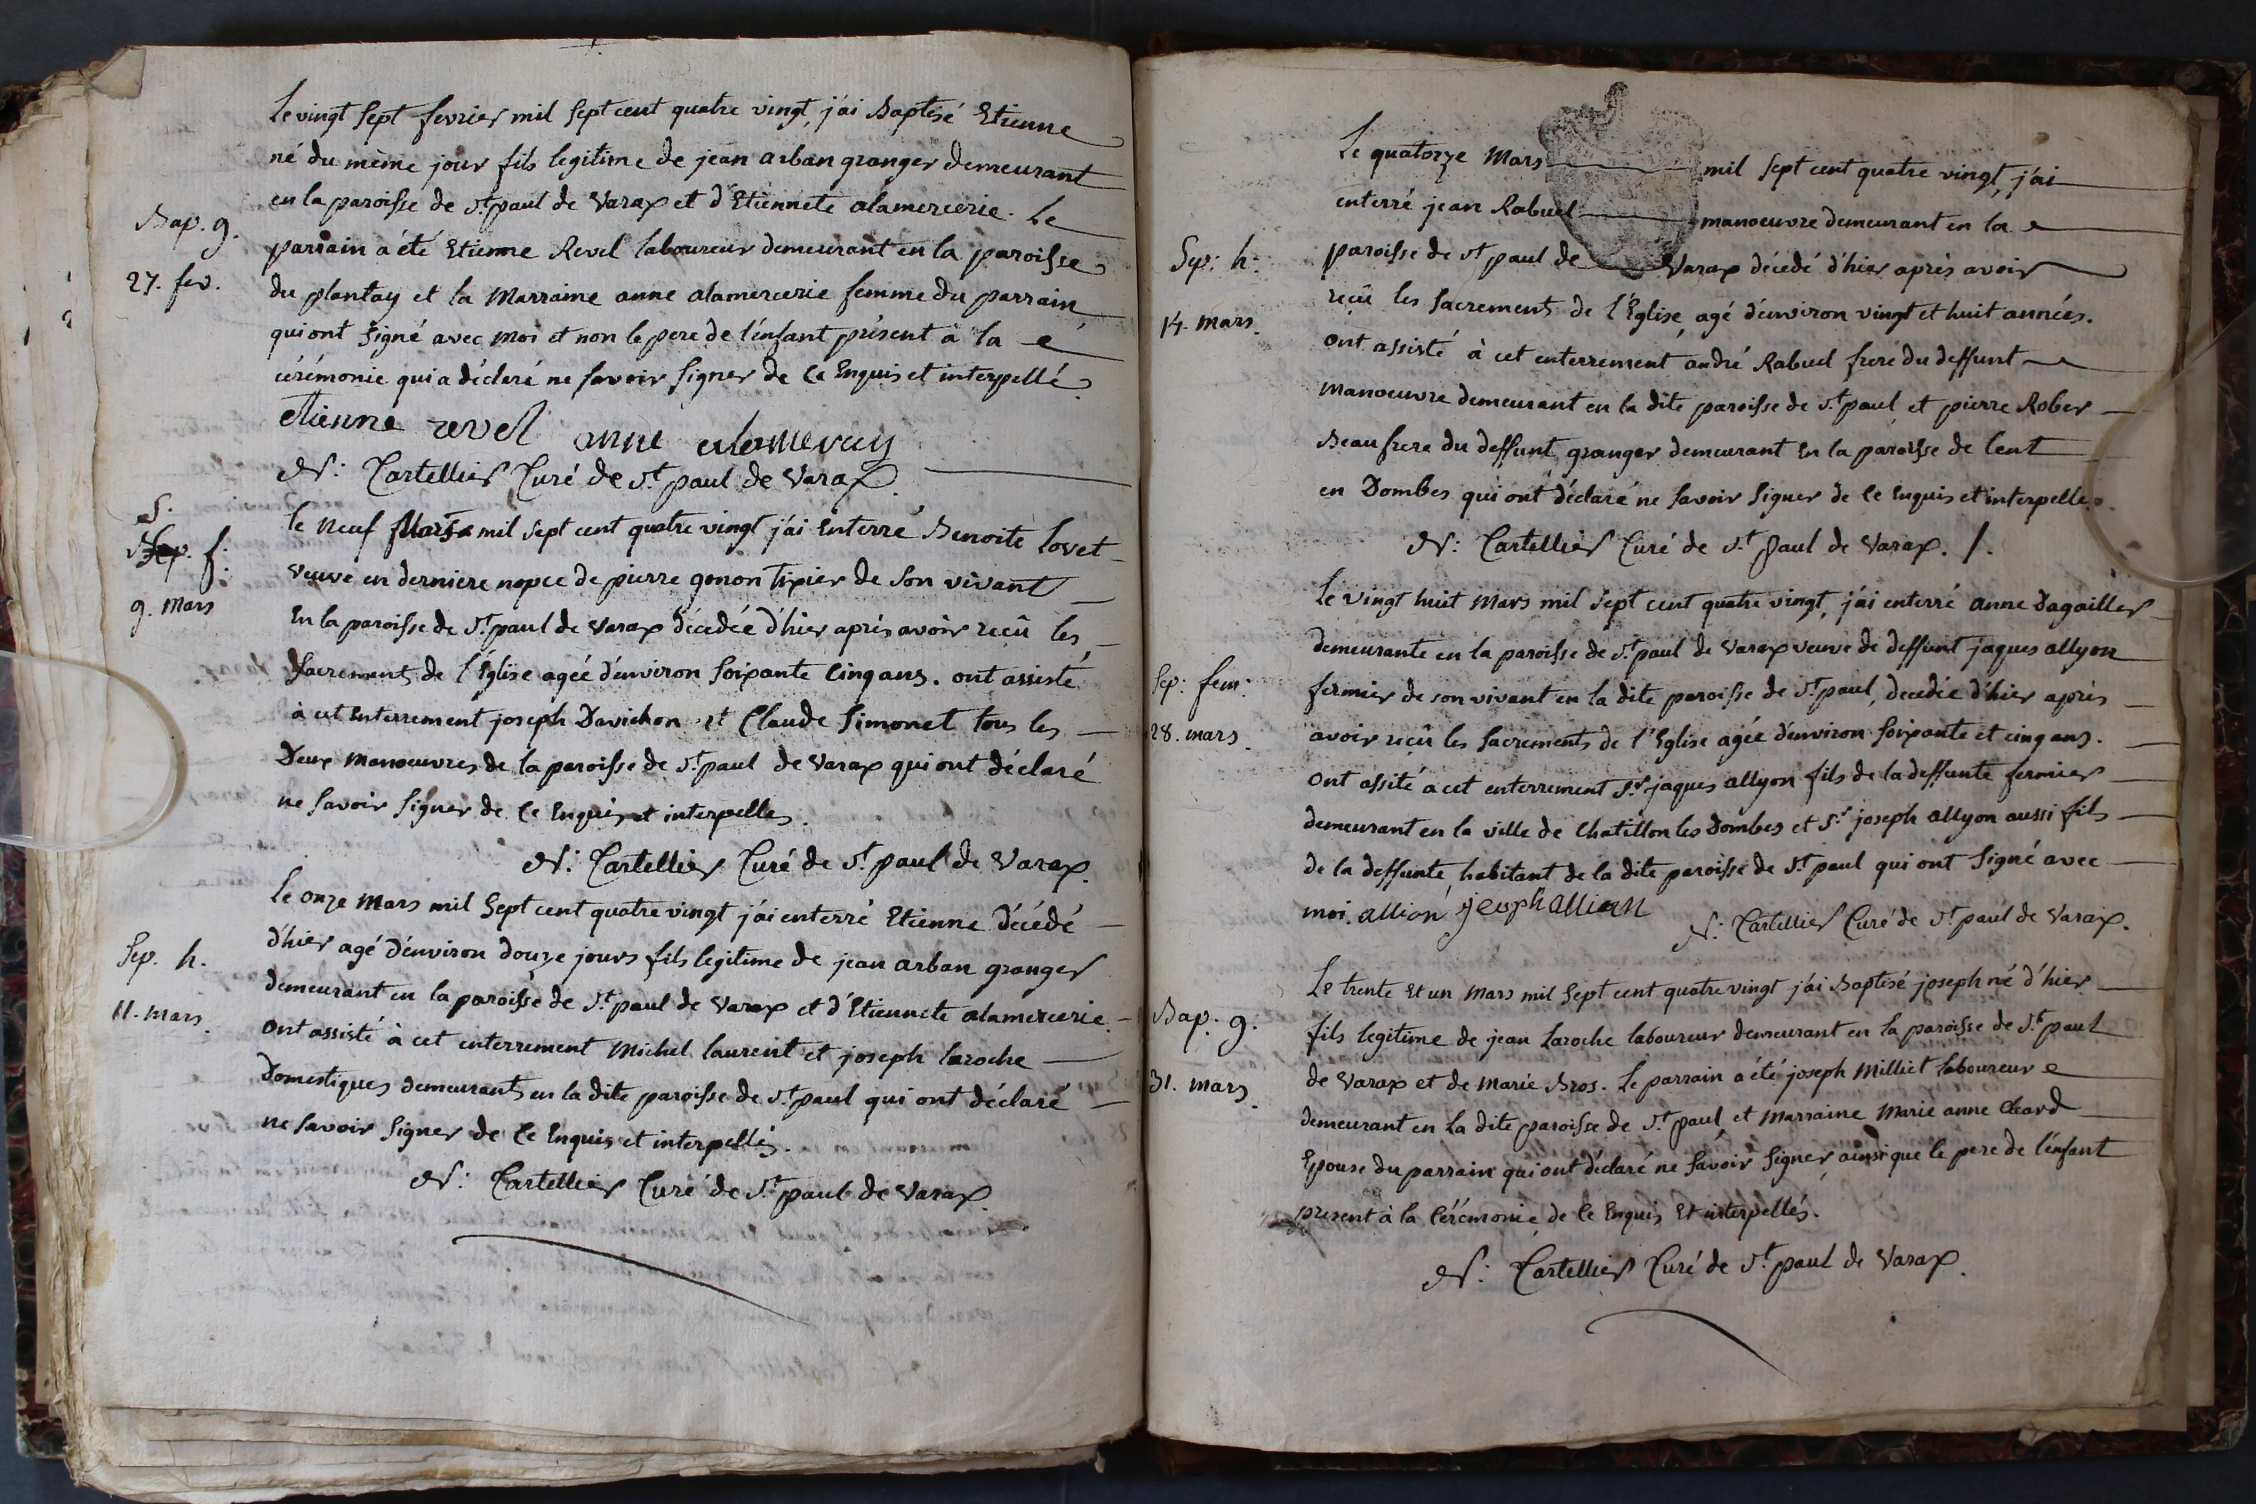 Le vingt sept fevrier mil sept cent quatre vingt, j'ai Baptisé Etienne
né du même jour fils legitime de jean arban granger demeurant
en la paroisse de St. paul de Varax et d'Etiennete alamercerie. Le
Bap. g.
27. fev.
parrain a été Etienne Revel laboureur demeurant en la paroisse
du plantay et la Marraine anne alamercerie femme du parrain
qui ont signé avec moi et non le pere de l'enfant présent à la
cérémonie qui a déclaré ne savoir signer de ce Enquis et interpellé.
etienne revel anne
N: Cartellier Curé de St. paul de Varax.
S.
Sep. f:
9. Mars
le neuf Mars mil sept cent quatre vingt j'ai Enterré Benoite Lovet
veuve en derniere nopce de pierre gonon Tixier de son vivant
En la paroisse de St. paul de Varax décédée d'hier après avoir reçû les
Sacrements de l'Eglise agée d'environ soixante cinq ans. ont assisté
à cet Enterrement joseph Davichon et Claude Simonet tous les
Deux manoeuvres de la paroisse de St. paul de Varax qui ont déclaré
ne savoir signer de ce Enquis et interpelles.
N: Cartellier Curé de St. paul de Varax.
Sep. h.
11. mars.
Le onze Mars mil Sept cent quatre vingt j'ai enterré Etienne décédé
d'hier agé d'environ douze jours fils legitime de jean arban granger
demeurant en la paroisse de St. paul de Varax et d'Etiennete alamercerie.
ont assisté à cet enterrement Michel laurent et joseph laroche
Domestiques demeurants en la dite paroisse de St. paul qui ont déclaré
ne savoir signer de ce Enquis et interpellés.
N: Cartellier Curé de St. paul de Varax.
Le quatorze Mars mil sept cent quatre vingt, j'ai
enterré jean Rabuel manoeuvre demeurant en la
Sep: h:
14. mars.
paroisse de St paul de Varax décedé d'hier après avoir
reçû les sacrements de l'Eglise, agé d'environ vingt et huit années.
ont assisté à cet enterrement andré Rabuel frere du deffunt
manoeuvre demeurant en la dite paroisse de St. paul et pierre Rober
Beau frere du deffunt, granger demeurant En la paroisse de lent
en Dombes qui ont déclaré ne savoir signer de ce Enquis et interpelles.
N: Cartellier Curé de St. Paul de Varax. /.
Le vingt huit Mars mil sept cent quatre vingt, j'ai enterré anne Dagallier
demeurante en la paroisse de St. paul de Varax veuve de deffunt jaques allyon
Sep: fem:
28. mars.
fermier de son vivant en la dite paroisse de St. paul, decedée d'hier après
avoir reçû les sacrements de l'Eglise agée d'environ soixante et cinq ans.
ont assité a cet enterrement Sr. jaques allyon fils de la deffunte fermier
demeurant en la ville de Chatillon les Dombes et Sr. joseph allyon aussi fils
de la deffunte, habitant de la dite paroisse de St. paul qui ont signé avec
moi. allion jeosph allian
N: Cartellier Curé de St. paul de Varax.
Le trente et un Mars mil Sept cent quatre vingt j'ai Baptisé joseph né d'hier
Bap. g.
31. mars.
fils legitime de jean Laroche laboureur demeurant en la paroisse de St. paul
de Varax et de Marie Bros. Le parrain a été joseph Milliet laboureur
demeurant en la dite paroisse de St. paul, et marraine Marie anne
Epouse du parrain qui ont déclaré ne savoir signer ainsi que le pere de l'enfant
present à la Cérémonie de ce Enquis Et interpellés.
N: Cartellier Curé de St. paul de Varax.